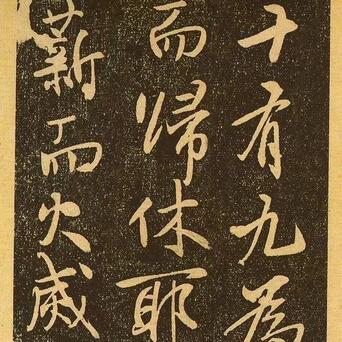 十有九為
而歸休耶
薪而火烕